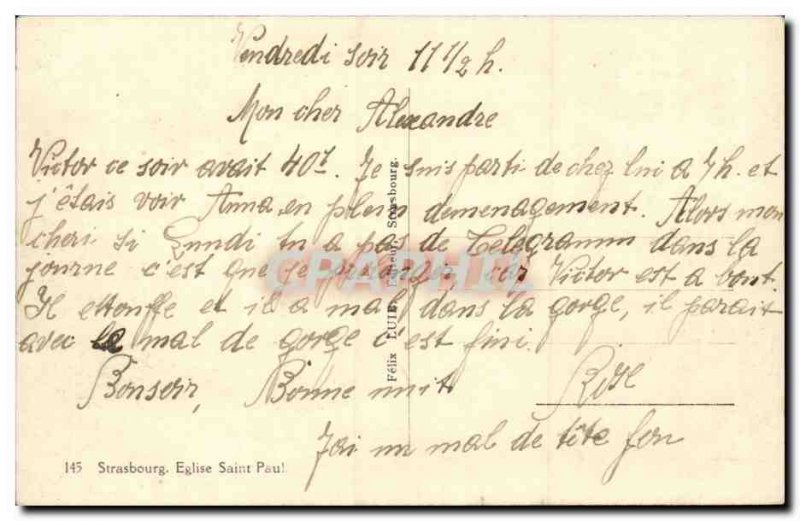 Vendredi soir 11 1/2 h.
Mon cher Alexandre
Victor ce soir avait 40°. Je suis parti de chez lui a 7h. et
j'êtais voir Anna en plein demenagement. Alors mon
cheri si Lundi tu a pas de Telegramm dans la
journe c'est que je prolonge, car Victor est a bout.
Il ettouffe et il a mal dans la gorge, il parait
avec le mal de gorge c'est fini.
Bonsoir, Bonne nuit Rose
J'ai un mal de tête fou
145 Strasbourg. Eglise Saint Paul
Félix LUIB, Strasbourg.
CPAPHIL